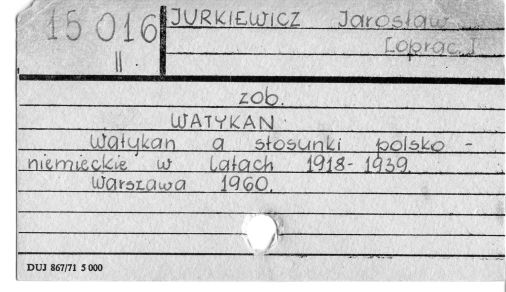 15 016
II
JURKIEWICZ Jarosław
[oprac.]
zob.
WATYKAN
Watykan a stosunki polsko -
niemieckie w latach 1918-1939.
Warszawa 1960.
DUJ 867/71 5 000